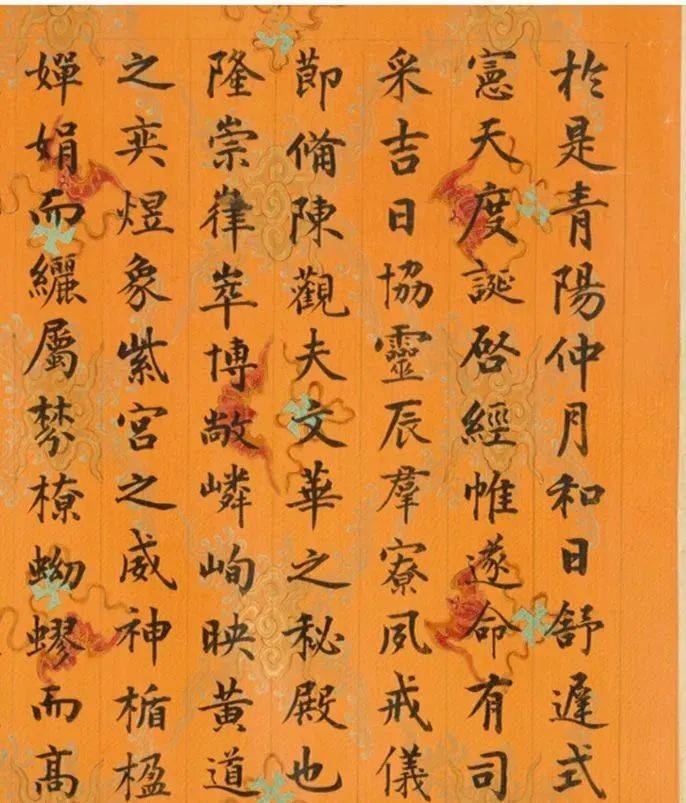 於是青陽仲月和日舒遲式
憲天度誕啓經帷遂命有司
采吉日協靈辰羣寮夙戒儀
節備陳觀夫文華之秘殿也
隆崇嵂崒博敞嶙峋映黃道
之奕煜象紫宮之威神楯楹
嬋娟而纚屬棼橑蚴蟉而高